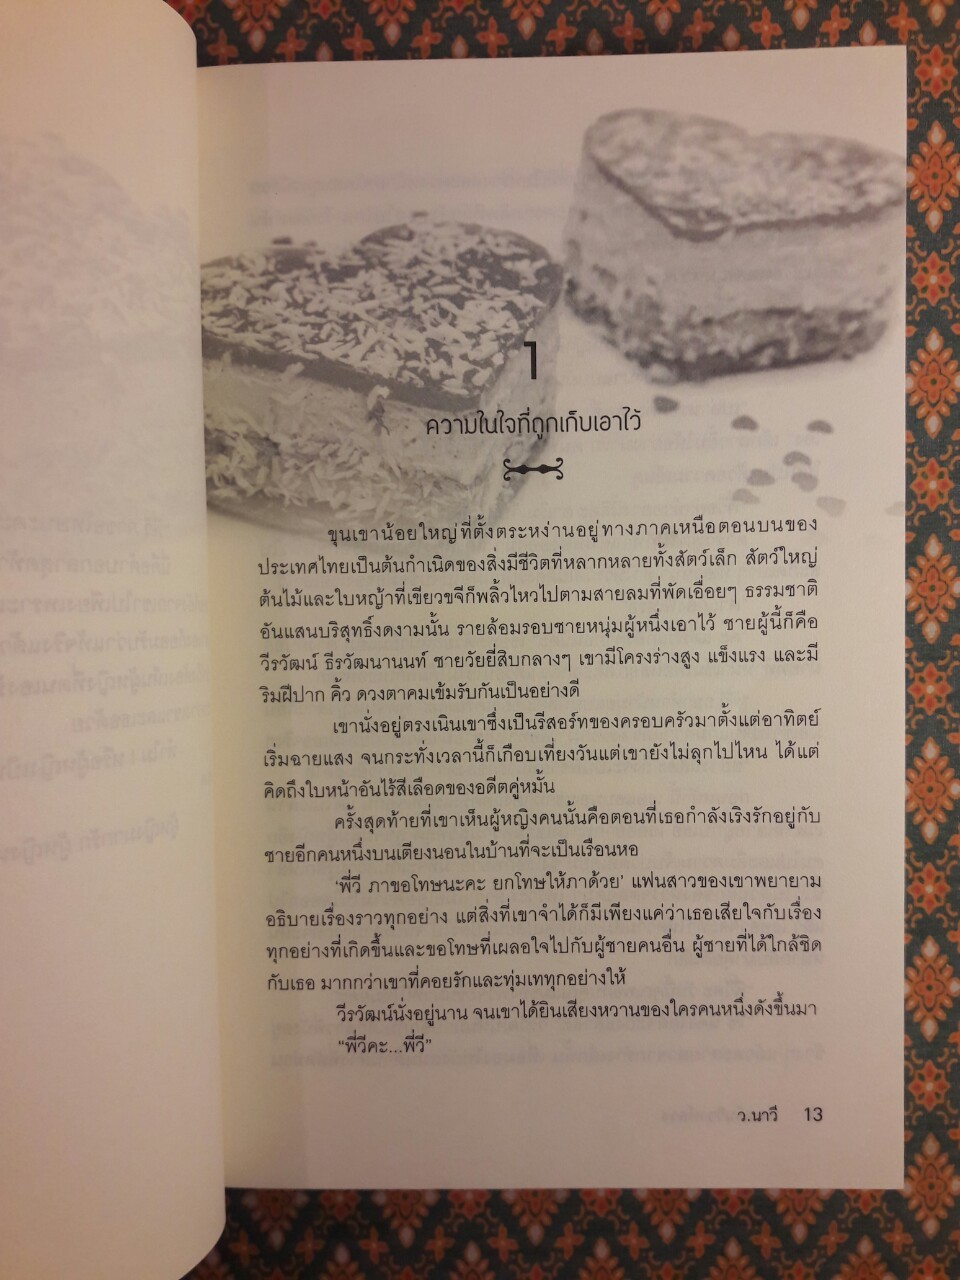 1
ความในใจที่ถูกเก็บเอาไว้
ขุนเขาน้อยใหญ่ที่ตั้งตระหง่านอยู่ทางภาคเหนือตอนบนของ
ประเทศไทยเป็นต้นกำเนิดของสิ่งมีชีวิตที่หลากหลายทั้งสัตว์เล็ก สัตว์ใหญ่
ต้นไม้และใบหญ้าที่เขียวขจีก็พลิ้วไหวไปตามสายลมที่พัดเอื่อยๆ ธรรมชาติ
อันแสนบริสุทธิ์งดงามนั้น รายล้อมรอบชายหนุ่มผู้หนึ่งเอาไว้ ชายผู้นี้ก็คือ
วีรวัฒน์ ธีรวัฒนานนท์ ชายวัยยี่สิบกลางๆ เขามีโครงร่างสูง แข็งแรง และมี
ริมฝีปาก คิ้ว ดวงตาคมเข้มรับกันเป็นอย่างดี
เขานั่งอยู่ตรงเนินเขาซึ่งเป็นรีสอร์ทของครอบครัวมาตั้งแต่อาทิตย์
เริ่มฉายแสง จนกระทั่งเวลานี้ก็เกือบเที่ยงวันแต่เขายังไม่ลุกไปไหน ได้แต่
คิดถึงใบหน้าอันไร้สีเลือดของอดีตคู่หมั้น
ครั้งสุดท้ายที่เขาเห็นผู้หญิงคนนั้นคือตอนที่เธอกำลังเริงรักอยู่กับ
ชายอีกคนหนึ่งบนเตียงนอนในบ้านที่จะเป็นเรือนหอ
‘พี่วี ภาขอโทษนะคะ ยกโทษให้ภาด้วย’ แฟนสาวของเขาพยายาม
อธิบายเรื่องราวทุกอย่าง แต่สิ่งที่เขาจำได้ก็มีเพียงแค่ว่าเธอเสียใจกับเรื่อง
ทุกอย่างที่เกิดขึ้นและขอโทษที่เผลอใจไปกับผู้ชายคนอื่น ผู้ชายที่ได้ใกล้ชิด
กับเธอ มากกว่าเขาที่คอยรักและทุ่มเททุกอย่างให้
วีรวัฒน์นั่งอยู่นาน จนเขาได้ยินเสียงหวานของใครคนหนึ่งดังขึ้นมา
“พี่วีคะ...พี่วี”
ว.นาวี 13